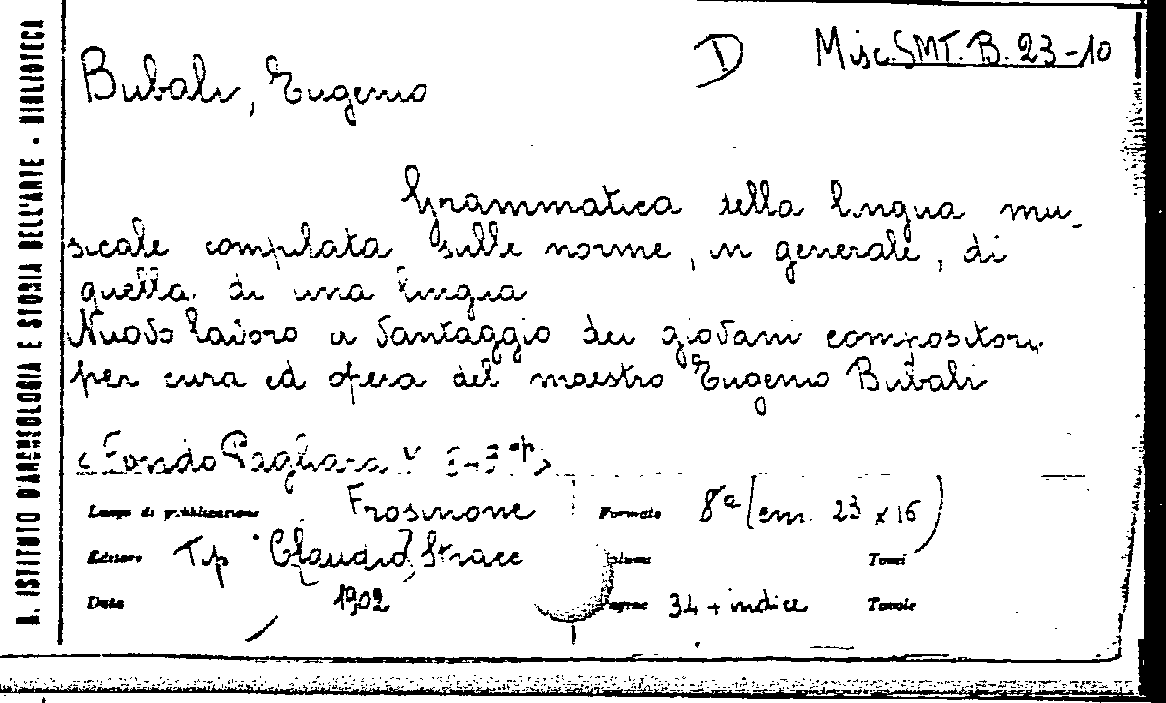 R. ISTITUTO D'ARCHEOLOGIA E STORIA DELL'ARTE - BIBLIOTECA
Bubali, Eugenio
D
Misc. SMT. B. 23-10
Grammatica della lingua mu-
sicale compilata sulle norme, in generale, di
quella di una lingua
Nuovo lavoro a vantaggio dei giovani compositori
per cura ed opera del maestro Eugenio Bubali
<Fondo Pagliara
Luogo di pubblicazione Frosinone
Formato 8º (cm. 23 x 16)
Editore Tip. Claudio Stracc
Volume
Tomi
Data 1902
Pagine 34 + indice
Tavole